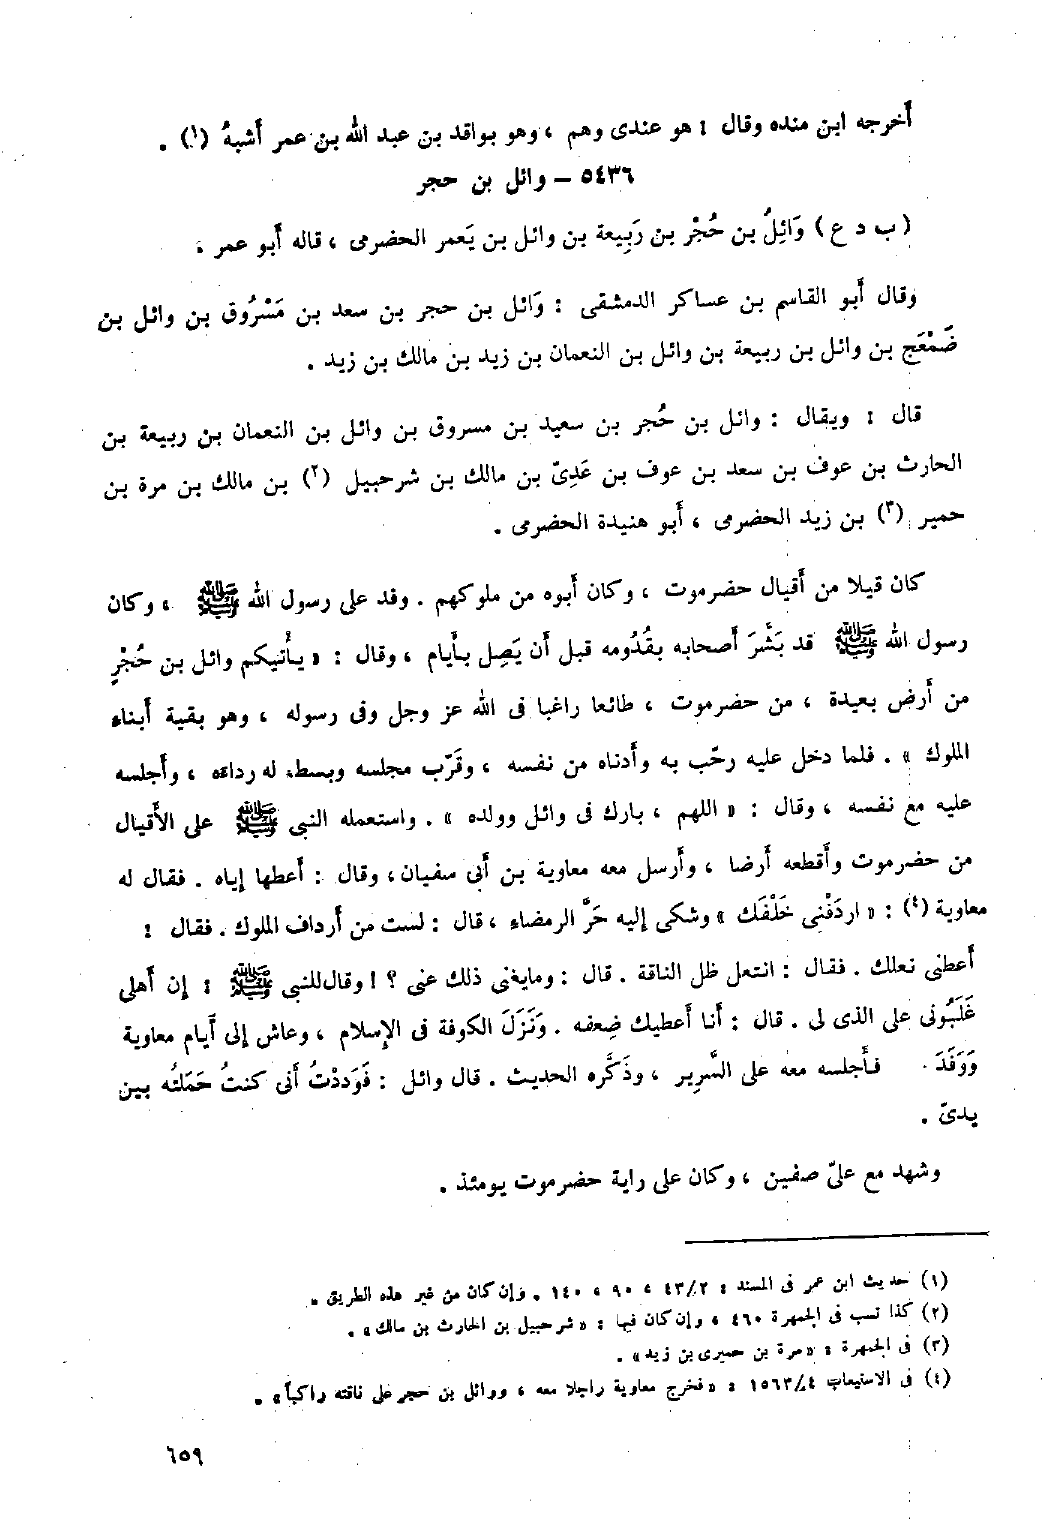 أخرجه ابن منده وقال : هو عندى وهم ، وهو بواقد بن عبد الله بن عمر أشبهُ (١) .
٥٤٣٦ – وائل بن حجر
( ب د ع ) وَائِلُ بن حُجْر بن رَبِيعة بن وائل بن يَعمر الحضرمى ، قاله أبو عمر .
وقال أبو القاسم بن عساكر الدمشقى : وَائل بن حجر بن سعد بن مَسْرُوق بن وائل بن
ضَمْعَج بن وائل بن ربيعة بن وائل بن النعمان بن زيد بن مالك بن زيد .
قال : ويقال : وائل بن حُجر بن سعيد بن مسروق بن وائل بن النعمان بن ربيعة بن
الحارث بن عوف بن سعد بن عوف بن عَدِىّ بن مالك بن شرحبيل (٢) بن مالك بن مرة بن
حمير (٣) بن زيد الحضرمى ، أبو هنيدة الحضرمى .
كان قيلا من أقيال حضرموت ، وكان أبوه من ملوكهم . وفد على رسول الله ﷺ ، وكان
رسول الله ﷺ قد بَشَّرَ أصحابه بقُدُومه قبل أن يَصِل بأيام ، وقال : « يأتيكم وائل بن حُجْرٍ
من أرض بعيدة ، من حضرموت ، طائعا راغبا فى الله عز وجل وفى رسوله ، وهو بقية أبناء
الملوك » . فلما دخل عليه رحّب به وأدناه من نفسه ، وقَرّب مجلسه وبسط له رداءه ، وأجلسه
عليه مع نفسه ، وقال : « اللهم ، بارك فى وائل وولده » . واستعمله النبى ﷺ على الأقيال
من حضرموت وأقطعه أرضا ، وأرسل معه معاوية بن أبى سفيان ، وقال : أعطها إياه . فقال له
معاوية (٤) : « اردَفْنى خَلْفَك » وشكى إليه حَرَّ الرمضاء ، قال : لست من أرداف الملوك . فقال :
أعطنى نعلك . فقال : انتعل ظل الناقة . قال : ومايغنى ذلك عنى ؟ ! وقال للنبى ﷺ : إن أهلى
غَلَبُونى على الذى لى . قال : أنا أعطيك ضِعفه . وَنَزَلَ الكوفة فى الإسلام ، وعاش إلى أيام معاوية
وَوَفَدَ . فأجلسه معه على السَّرِير ، وذَكَّره الحديث . قال وائل : فَوَددْتُ أنى كنتُ حَمَلتُه بين
يدىّ .
وشهد مع علىّ صفين ، وكان على راية حضرموت يومئذ .
(١) حديث ابن عمر فى المسند : ٤٣/٢ ، ٩٠ ، ١٤٠ . وإن كان من غير هذه الطريق .
(٢) كذا نسب فى الجمهرة ٤٦٠ ، وإن كان فيها : « شرحبيل بن الحارث بن مالك » .
(٣) فى الجمهرة : « مرة بن حميرى بن زيد » .
(٤) فى الاستيعاب ١٥٦٣/٤ : « فخرج معاوية راجلا معه ، ووائل بن حجر على ناقته راكباً » .
٦٥٩